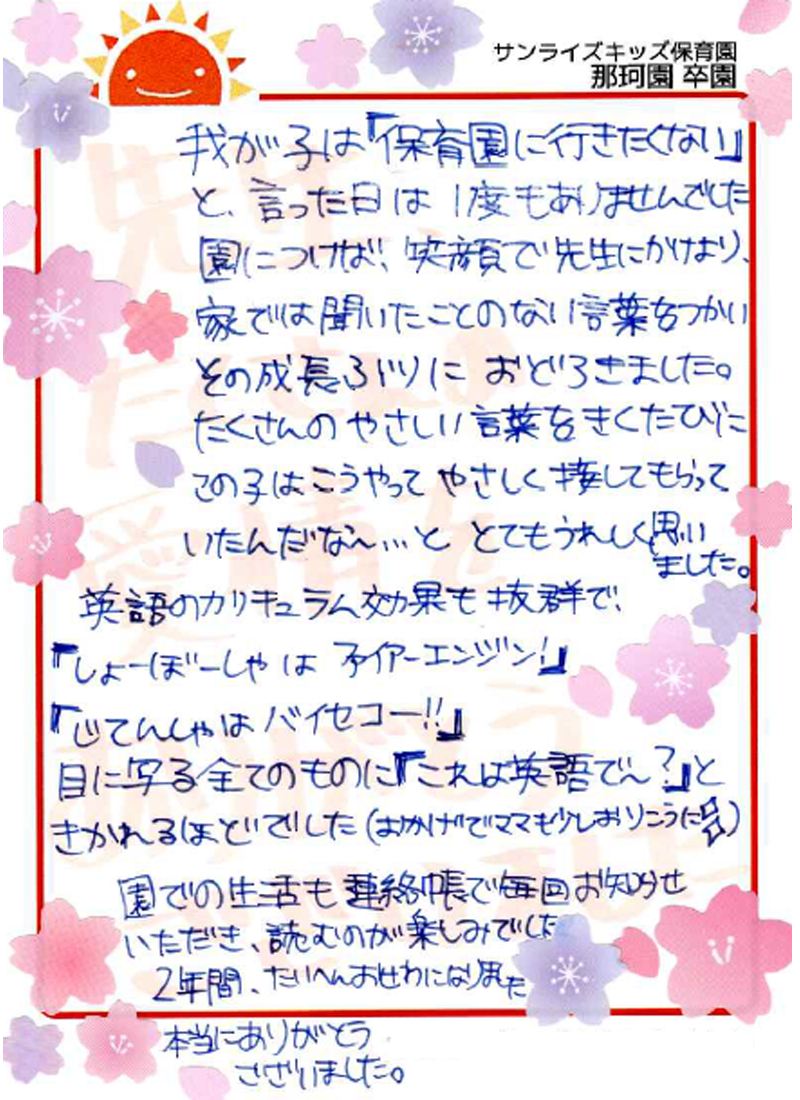 サンライズキッズ保育園
那珂園 卒園
我が子は『保育園に行きたくない』
と、言った日は1度もありませんでした
園につけば、笑顔で先生にかけより、
家では聞いたことのない言葉をつかい
その成長ぶりに おどろきました。
たくさんの やさしい言葉をきくたびに
この子は こうやって やさしく接してもらって
いたんだな～…と とてもうれしく思い
ました。
英語のカリキュラム効果も 抜群で、
『しょーぼーしゃ は ファイアーエンジン!』
『じてんしゃは バイセコー!!』
目に写る全てのものに『これは英語でん?』と
きかれるほどでした(おかげでママも少しおりこうに)
園での生活も 連絡帳で毎回お知らせ
いただき、読むのが楽しみでした
2年間、たいへんおせわになりました
本当にありがとう
ございました。